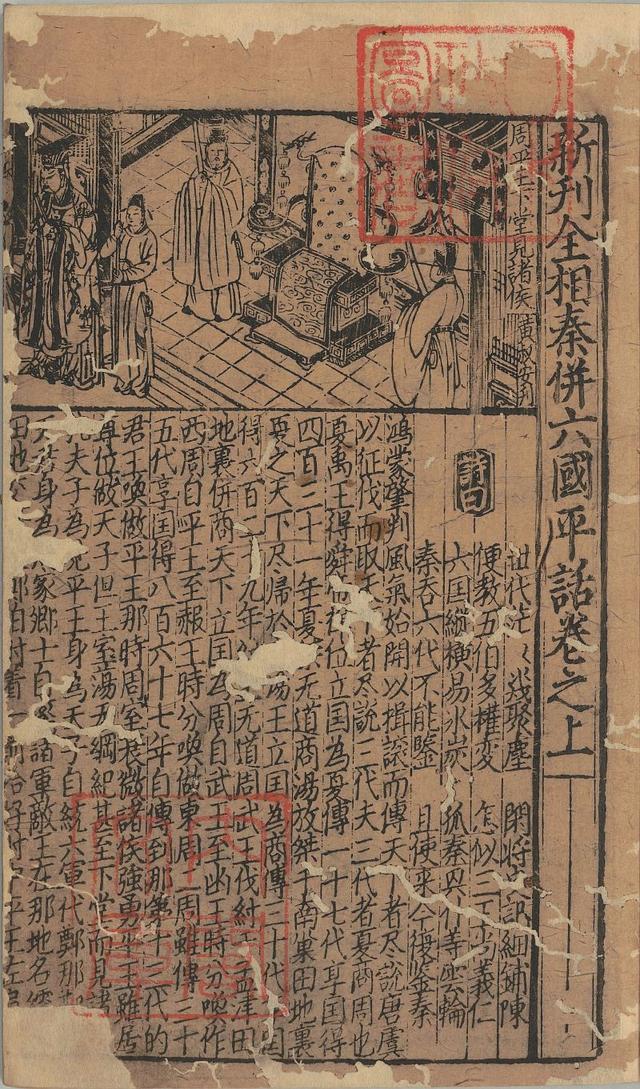 新刊全相秦併六國平話卷之上
周平王下堂見諸侯
詩曰
世代茫〻幾聚塵 閑將記細鋪陳
便教五伯多權變 怎似三義仁
六国縱橫易氷炭 孤秦等雲輪
秦吞六代不能鑒 且使來今復鑒秦
鴻蒙肇判風氣始開以揖讓而傳天下者尽說唐虞
以征伐而取天者尽說三代夫三代者夏商周也
夏禹王得舜位立国為夏傳一十七代享国得
四百二十一年夏无道商湯放桀于南巢田地裏
夏之天下尽歸於湯王立国為商傳三十代国
得六百二十九年无道周武王伐紂于孟津田
地裏併商天下立国為周自武王至幽王時分喚作
西周自平王至赧王時分喚做東周二周雖傳三十
五代享国得八百六十七年自傳到那第十三代的
君王喚做平王那時周室衰微諸侯強勇平王雖居
尊位做天子但王室蕩无綱紀甚至下堂而見諸
夫子為平王身為天子自統六軍代鄭那
身為家鄉士自諸軍敵王在那地名
田地